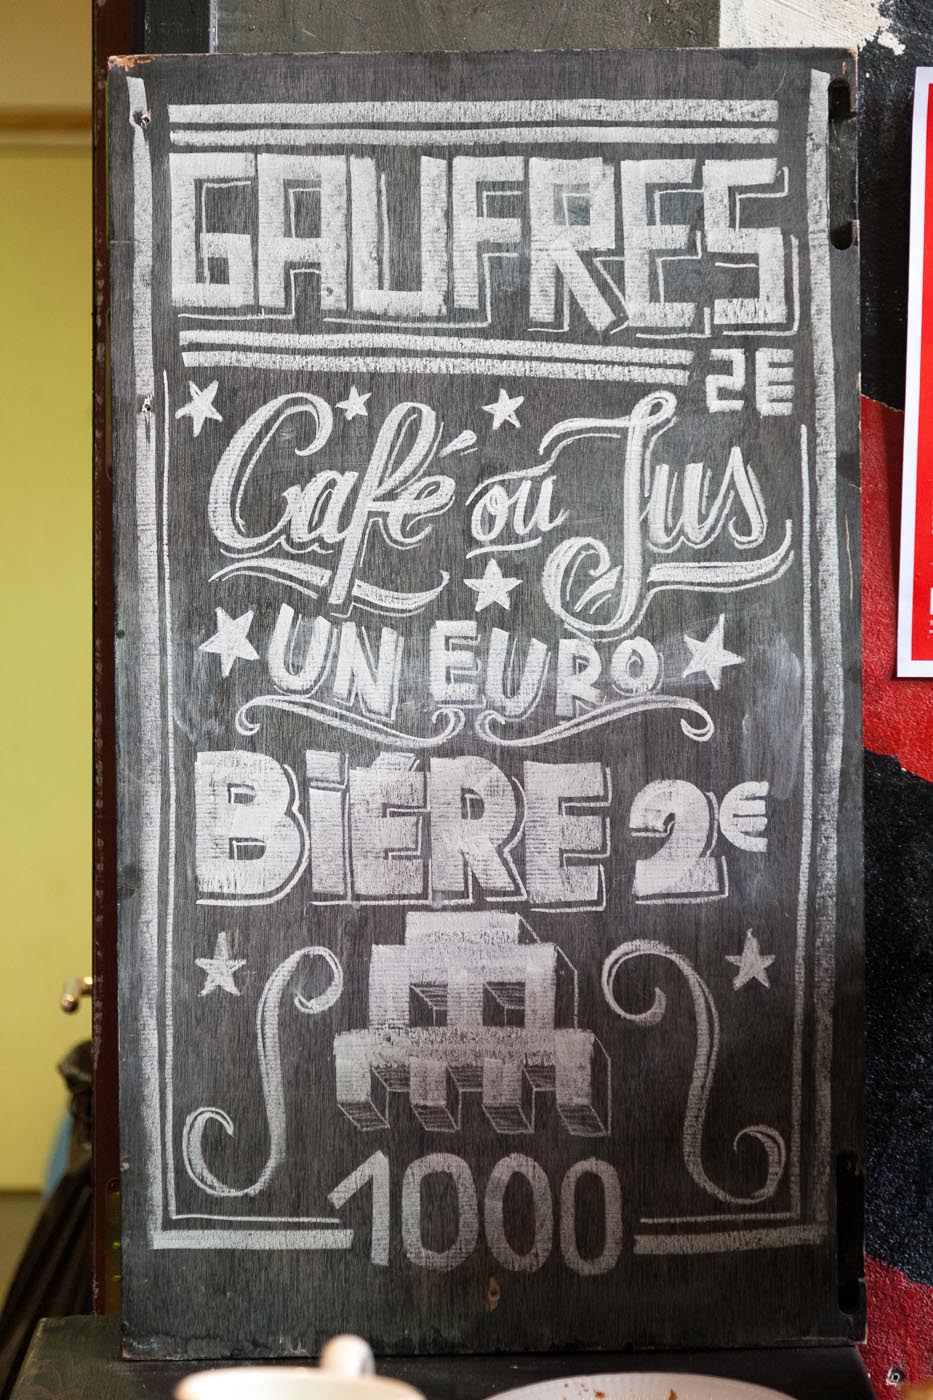 GAUFRES
2E
Café ou Jus
UN EURO
BiÉRE 2€
1000